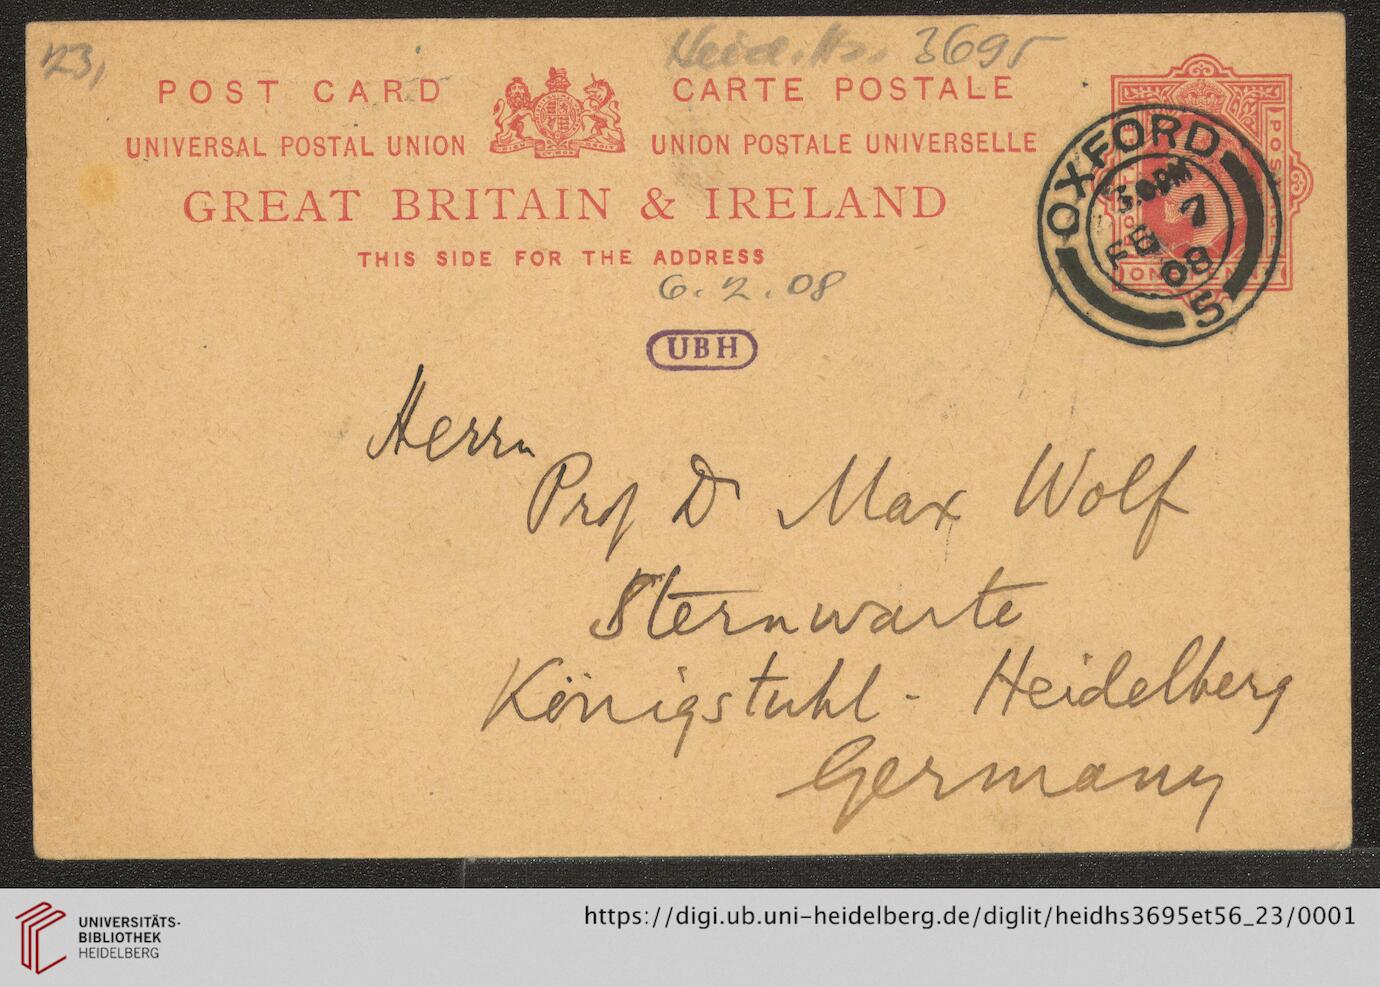 23,
Heid. Hs. 3695
POST CARD
CARTE POSTALE
UNIVERSAL POSTAL UNION
UNION POSTALE UNIVERSELLE
GREAT BRITAIN & IRELAND
THIS SIDE FOR THE ADDRESS
6.2.08
OXFORD
5.0 PM
FE 7
08
5
UBH
Herrn
Prof Dr Max Wolf
Sternwarte
Königstuhl - Heidelberg
Germany
UNIVERSITÄTS-
BIBLIOTHEK
HEIDELBERG
https://digi.ub.uni-heidelberg.de/diglit/heidhs3695et56_23/0001